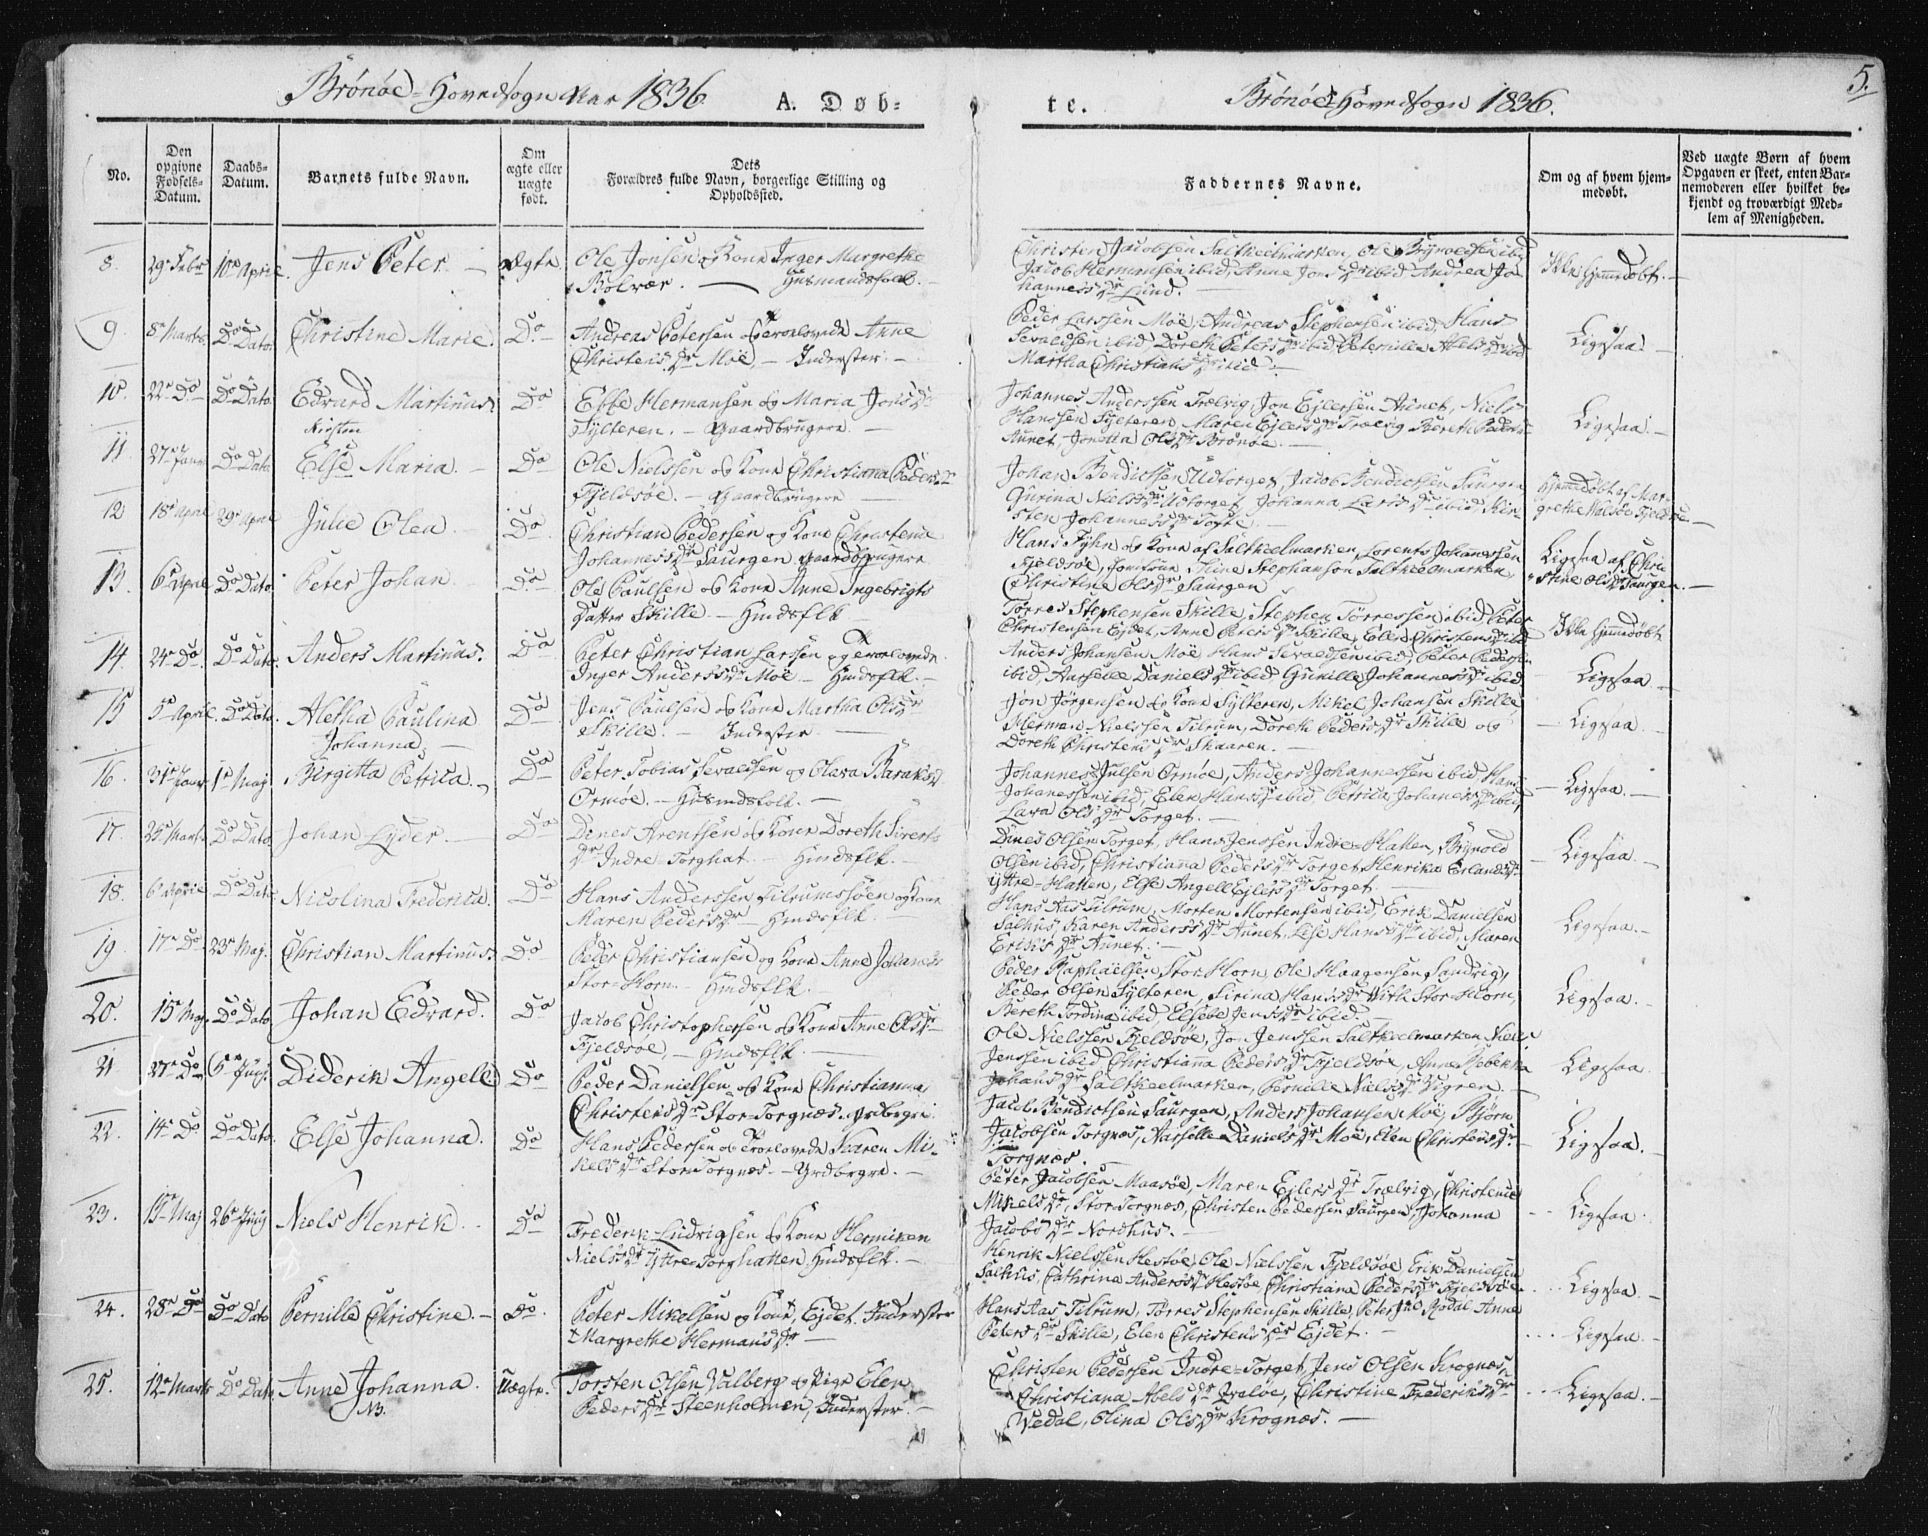 5.
Brönöe Hovedsogn Aar 1836
A. Døb-
te.
Brönöe Hovedsogn 1836.
No.
Den opgivne Fødsels-Datum.
Daabs-Datum.
Barnets fulde Navn.
Om ægte eller uægte født.
Dets Forældres fulde Navn, borgerlige Stilling og Opholdssted.
Faddernes Navne.
Om og af hvem hjem-
medøbt.
Ved uægte Børn af hvem
Opgaven er skeet, enten Bar-
nemoderen eller hvilket be-
kjendt og troværdigt Med-
lem af Menigheden.
8. 29e Febr 10de April. Jens Peter. — Ægte Ole Jonsen og Kone Inger Margrethe
Bolvær. — Huusmandsfolk. —
Christen Jacobsen Saltkeelmarken, Ole Brynoldsen ibid
Jacob Hermansen ibid, Anne Jons Dr ibid Andrea Jo-
hannes Dr Lund. —
Ikke hjemmedøbt. —
9 8e Marts Do Dato Christine Marie. Do — Andreas Petersen og troelovede Anne
Christens Dr Moe — Inderster. —
Peder Larssen Moe, Andreas Stephensen ibid, Hans
Sevaldsen ibid Doreth Peters Dr ibid Peternille Abels Dr ibid
Martha Christians Dr ibid. —
Ligesaa. —
10. 22e Do Do Dato. Edvard Martinus. Do Ebbe Hermansen og Maria Jons Dr
Sylteren. — Gaardbrugere. —
Johannes Anderssen Trælvig, Jon Ejlersen Aunet, Niels
Hanssen Sylteren, Maren Ejlers Dr Trælvig Bereth Peders
Aunet, Jonetta Ols Dr Brönöe. —
Ligesaa. —
11 27e Janr Do Dato Kirsten
Else Maria. — Do Ole Nielssen og Kone Christiana Peders Dr
Fjeldsöe. — Gaardbrugere —
Johan Bendictsen Udtorget, Jacob Bendictsen Saurgen
Gurina Niels Dr Udtorget, Johanna Lars Dr ibid, Kir-
sten Johannes Dr Tofte. —
Hjemmedøbt af Mar-
grethe Fjeldsöe —
12 18e April 29e April Julie Olea — Do Christian Pedersen og Kone Christence
Johannes Dr Saurgen Gaardbrugere
Hans Fyhn og Kone af Saltkeelmarken, Lorents Johannessen
Fjeldsöe, Stine Stephanson Saltkeelmarken,
Christine Ols Dr Saurgen
Ligesaa af Chri
stine Ols Dr Saurgen. —
13. 6e April Do Dato Peter Johan. Do Ole Paulsen og Kone Anne Ingebrigts
Datter Skille. — Hmdsflk —
Torres Stephensen Skille, Stephen Torressen ibid, Peter
Christensen Ejdet, Anne Peters Dr Skille, Elen Christens Dr ibid
Ikke hjemmedøbt
14. 24e Do. Do Dato. Anders Martinus. Do Peter Christian Larssen og troelovede
Inger Anders Dr Moe — Hmdsflk. —
Anders Johansen Moe Hans Sevaldsen ibid, Peter Pedersen
ibid, Aarselle Daniels Dr ibid Gunille Johannes Dr ibid
Ligesaa —
15 5e April. Do Dato. Aletha Paulina
Johanna. — Do Jens Paulsen og Kone Martha Ols Dr
Skille. — Inderster —
Jon Jörgensen og Kone Sylteren, Mikel Johansen Skille
Herman Nielssen Tilrum, Doreth Peders Dr Skille og
Doreth Christens Dr Skaaren. —
— Ligesaa. —
16 31e Janr 1e Maj Birgitta Petrica. — Do Peter Tobias Sevaldsen og Olava Baraks Dr
Ormöe. — Husmdsfolk. —
Johannes Julsen Ormöe, Anders Johannessen ibid Hans
Johanessen ibid, Elen Hans Dr ibid, Petrica Johannes Dr ibid
Lava Ols Dr Torget. —
— Ligesaa. —
17. 25e Marts Do Dato. Johan Lyder. — Do Dines Arentsen og Kone Doreth Siverts
Dr Indre Torghat. — Hmdsflk. —
Dines Olsen Torget, Hans Jenssen Indre-Hatten, Brynold
Olsen ibid, Christiana Peders Dr Torget, Henrika Erlands Dr
Yttre-Hatten, Else Angell Ejlers Dr Torget. —
— Ligesaa. —
18. 6e April Do Dato. Nicolina Frederica. Do Hans Anderssen Tilrumssöen og Kone
Maren Peders Dr — Hmdsflk. —
Hans Aas Tilrum, Morten Mortensen ibid, Erik Danielsen
Salhus, Karen Anders Dr Aunet, Lise Hans Dr ibid, Maren
Eriks Dr Aunet. —
Ligesaa. —
19. 17e Do 23e Maj. Christian Martinus. Do Peder Christiansen og Kone Anne Johannes
Stor-Horn. — Hmdsflk. —
Peder Raphaëlsen Stor Horn, Ole Haagensen Sandvig,
Peder Olsen Sylteren, Sirina Hans Dr Stor-Horn,
Bereth Tordina ibid, Elsebe Jens Dr ibid. —
Ligesaa. —
20. 15e Maj. Do Dato Johan Edvard. Do Jacob Christophersen og Kone Anne Ols Dr
Fjeldsöe, — Hmdsflk. —
Ole Nielssen Fjeldsöe, Jon Jenssen Saltkeelmarken Niels
Jenssen ibid Christianna Peders Dr Fjeldsöe, Anne Rebekka
Johans Dr Saltkeelmarken, Pernille Niels Dr Vigren. —
Ligesaa.
21 27e Do 5e Juny. Diderik Angell Do Peder Danielsen og Kone Christianna
Christens Dr Stor-Torgnæs.
Jacob Bendictsen Saurgen, Anders Johansen Moe, Björn
Jacobsen Torgnæs, Aarselle Daniels Dr Moe, Elen Christens Dr
Torgnæs. —
Ligesaa. —
22. 14e Do Do Dato. Else Johanna. Do Hans Pedersen og troelovede Karen Mi-
kels Dr Stor Torgnæs. —
Peter Jacobsen Maasöe, Maren Ejlers Dr Trælvig, Christence
Mikels Dr Stor Torgnæs, Christen Pedersen Saurgen, Johanna
Jacobs Dr Nordhus. —
Ligesaa.
23. 15e Maj 26e Juny Niels Henrik. Do Frederik Ludvigsen og Kone Hermiken
Niels Dr Yttre Torghatten, Hmdsflk. —
Henrik Nielssen Hestöe, Ole Nielssen Fjeldsöe Erik Danielsen
Salhus, Cathrina Anders Dr Hestöe Christiana Peders Dr Fjeldsöe
Ligesaa. —
24. 28e Do Do Dato Pernille Christine. — Do. Peter Mikelsen og Kone, Ejdet, Inderster
Margrethe Hermans Dr —
Hans Aas Tilrum, Torres Stephensen Skille, Peter Rödal Anne
Peters Dr Skille, Elen Christens Dr Ejdet. —
Ligesaa —
25. 12e Marts Do Dato Anne Johanna.
NB. Uægte. Torsten Olsen Valberg og Pige Elen
Peders Dr Steenholmen, Inderster. —
Christen Pedersen Indre-Torget, Jens Olsen Krognæs,
Christiana Abels Dr, Christine Frederiks Dr
Vedal, Olina Ols Dr Krognæs. —
Ligesaa. —